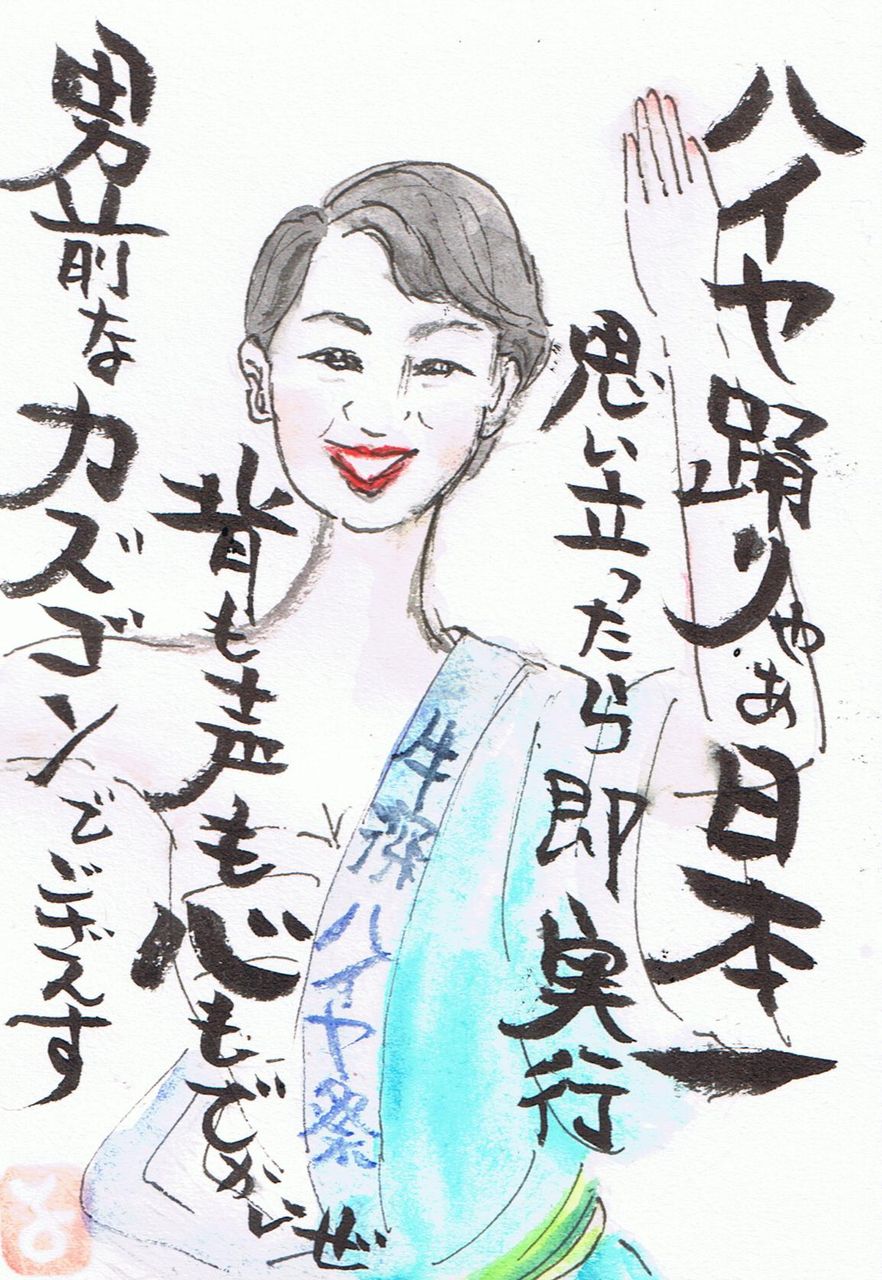 ハイヤ踊りゃあ日本一
思い立ったら即実行
牛深ハイヤ祭
背も声も心もでがいぜ
男前なカズゴンでござえす